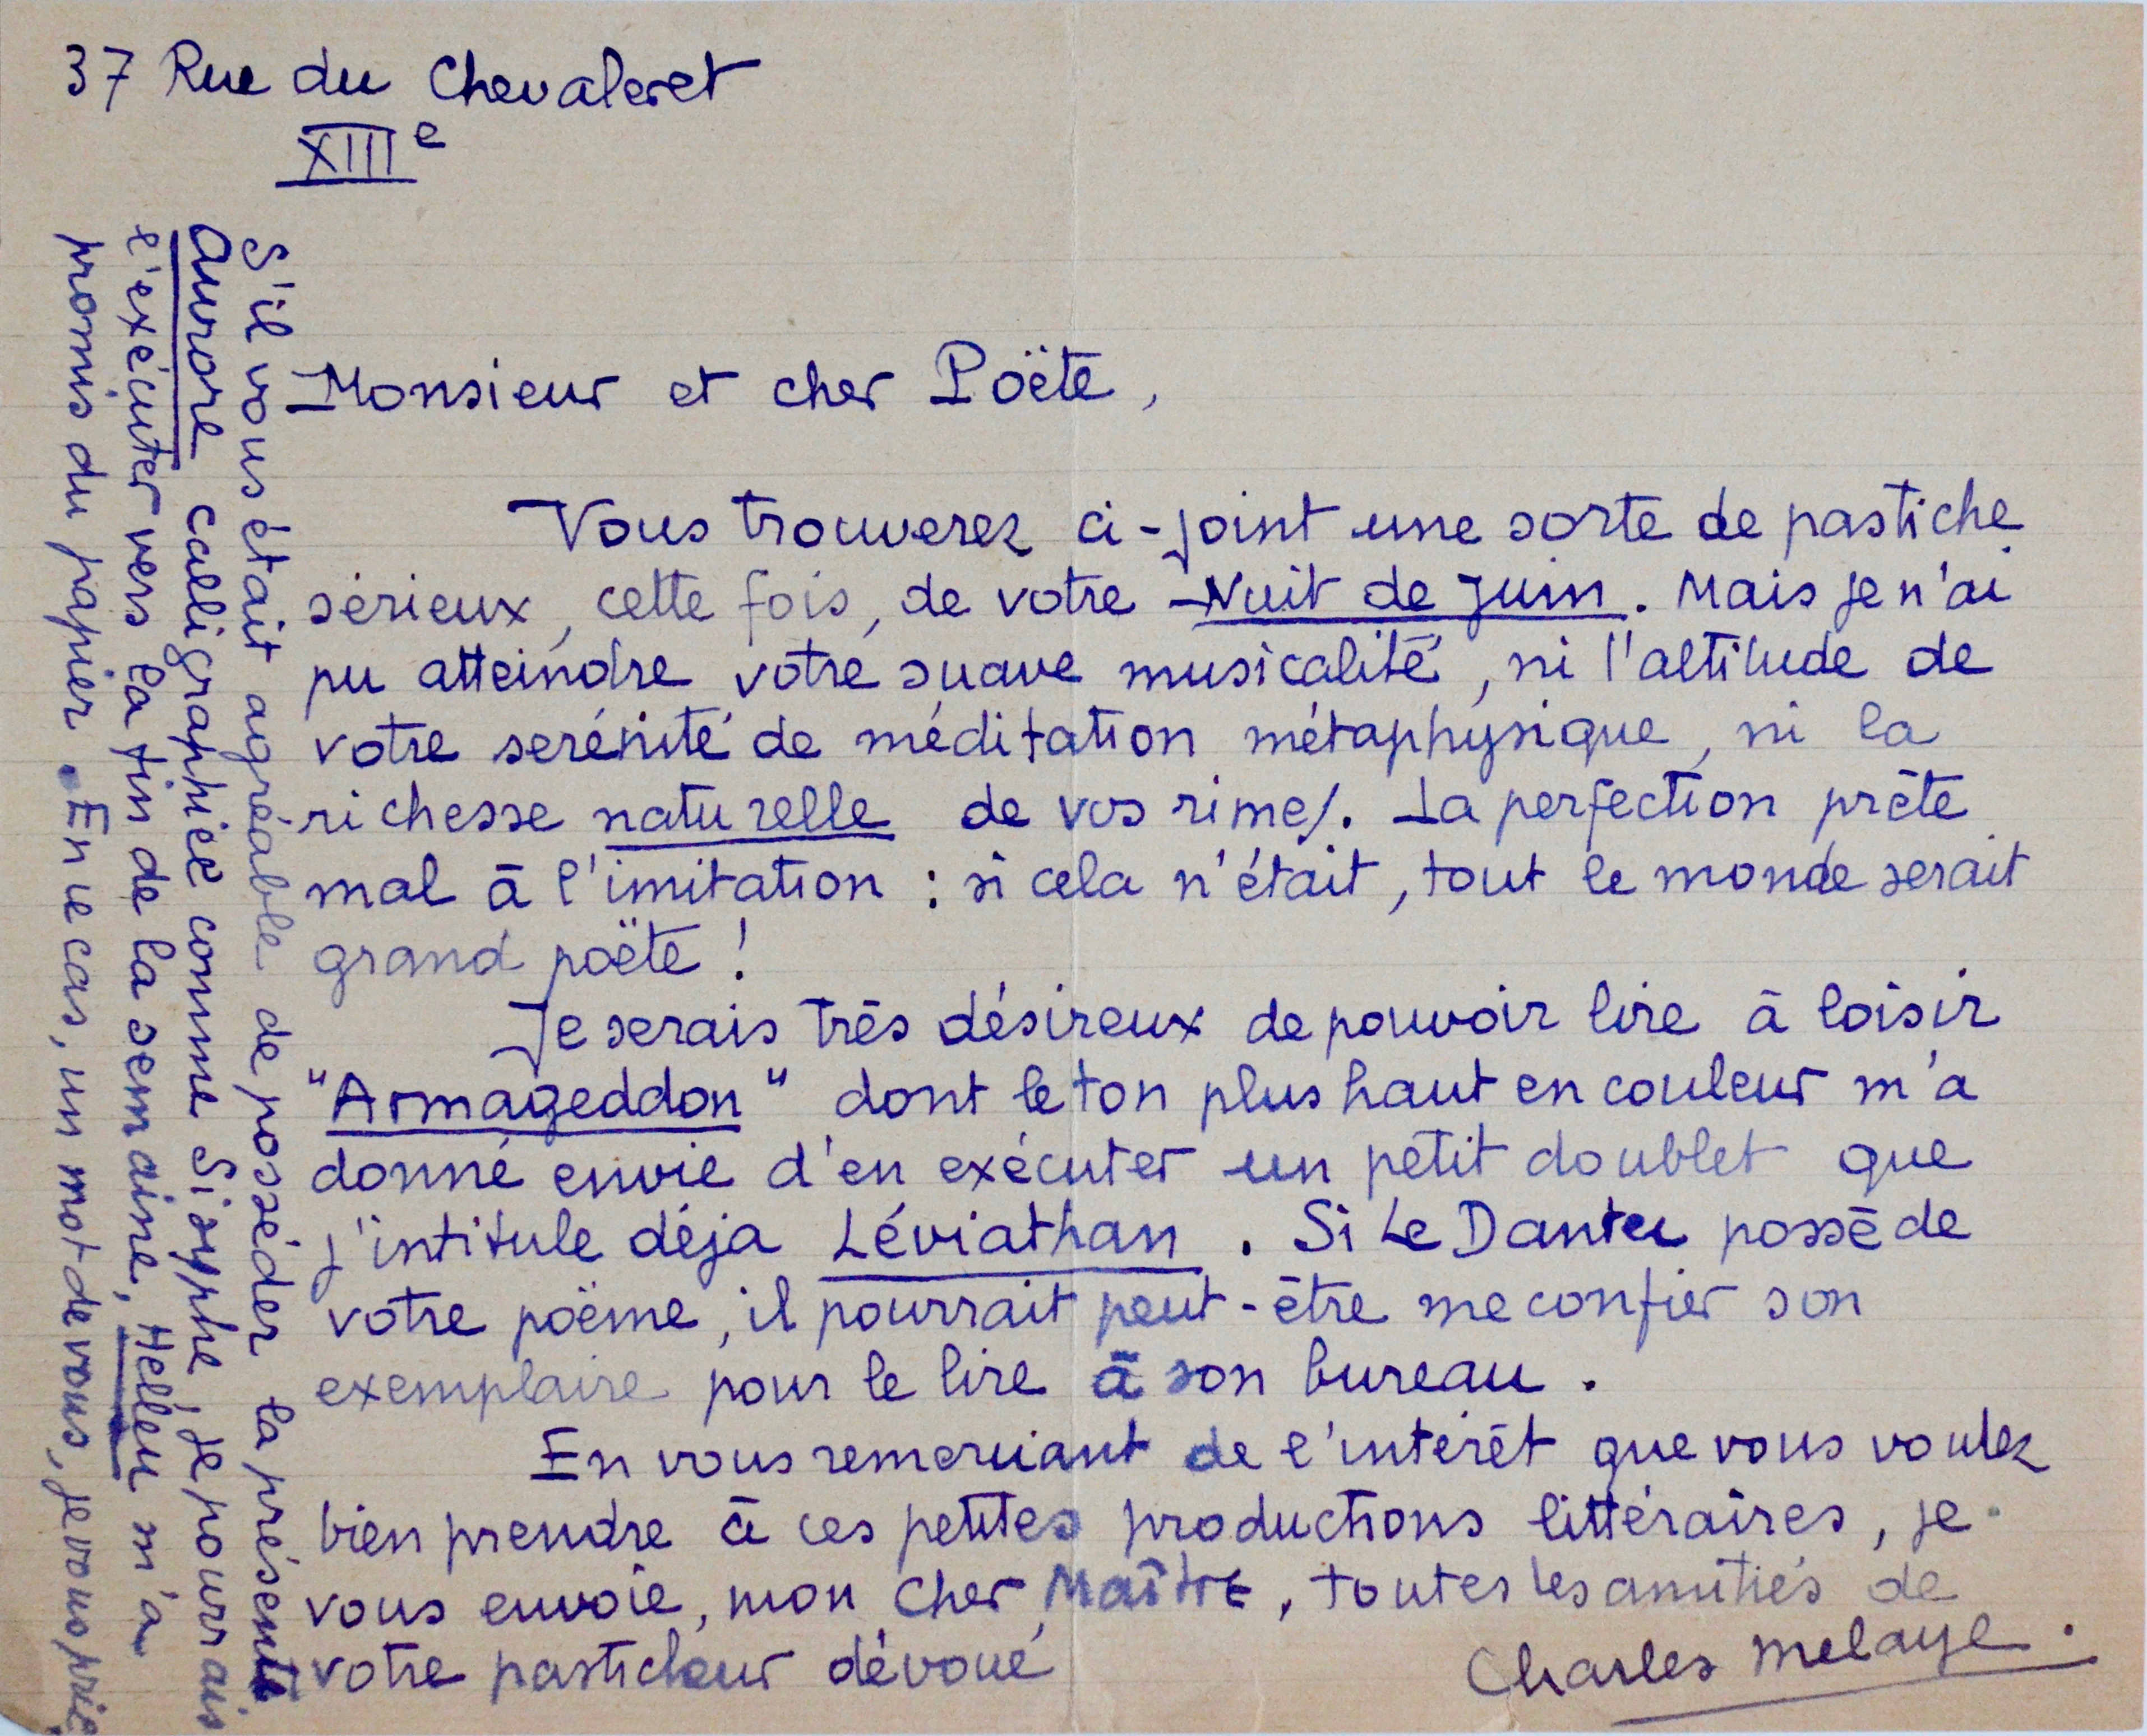 37 Rue du Chevaleret
XIIIe
Monsieur et cher Poëte,
Vous trouverez ci-joint une sorte de pastiche
sérieux, cette fois, de votre Nuit de Juin. Mais je n'ai
pu atteindre votre suave musicalité, ni l'altitude de
votre serénité de méditation métaphysique, ni la
richesse naturelle de vos rimes. La perfection prête
mal à l'imitation : si cela n'était, tout le monde serait
grand poëte !
Je serais très désireux de pouvoir lire à loisir
"Armageddon" dont le ton plus haut en couleur m'a
donné envie d'en exécuter un petit doublet que
j'intitule déja Léviathan. Si Le Dantec possède
votre poëme, il pourrait peut-être me confier son
exemplaire pour le lire à son bureau.
En vous remerciant de l'intérêt que vous voulez
bien prendre à ces petites productions littéraires, je
vous envoie, mon cher Maître, toutes les amitiés de
votre pasticheur dévoué
Charles Melaye.
S'il vous était agréable de posséder la présente
Aurore calligraphiée comme Sisyphe, je pourrais
l'exécuter vers la fin de la semaine, Helleu m'a
promis du papier. En ce cas, un mot de vous, je vous prie